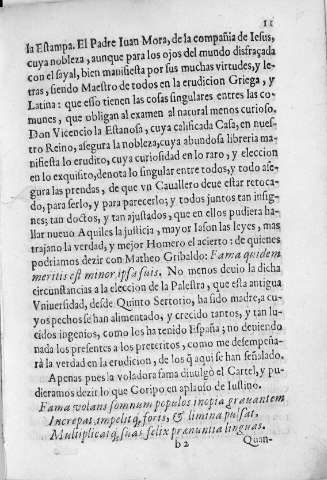 11
la Estampa. El Padre Iuan Mora, de la compañia de Iesus,
cuya nobleza, aunque para los ojos del mundo disfraçada
con el sayal, bien manifiesta por sus muchas virtudes, y le-
tras, siendo Maestro de todos en la erudicion Griega, y
Latina: que esso tienen las cosas singulares entre las co-
munes, que obligan al examen al natural menos curioso.
Don Vicencio la Estanosa, cuya calificada Casa, en nues-
tro Reino, asegura la nobleza, cuya abundosa libreria ma-
nifiesta lo erudito, cuya curiosidad en lo raro, y eleccion
en lo exquisito, denota lo singular entre todos, y todo ase-
gura las prendas, de que vn Cauallero deue estar retoca-
do, para serlo, y para parecerlo; y todos juntos tan insig-
nes; tan doctos, y tan ajustados, que en ellos pudiera ha-
llar nueuo Aquiles la justicia, mayor Iason las leyes, mas
trajano la verdad, y mejor Homero el acierto: de quienes
podriamos dezir con Matheo Gribaldo: Fama quidem
meritis est minor, ipsa suis. No menos deuio la dicha
circunstancias a la eleccion de la Palestra, que esta antigua
Vniuersidad, desde Quinto Sertorio, ha sido madre, a cu-
yos pechos se han alimentado, y crecido tantos, y tan lu-
cidos ingenios, como los ha tenido España; no deuiendo
nada los presentes a los preteritos, como me desempeña-
rà la verdad en la erudicion, de los q̃ aqui se han señalado.
Apenas pues la voladora fama diuulgò el Cartel, y pu-
dieramos dezir lo que Coripo en aplauso de Iustino.
Fama volans somnum populos inopia grauantem
Increpat, impelitq́, forts, & limina pulsat,
Multiplicatq́, suas felix prænuntia linguas.
b 2 Quan-